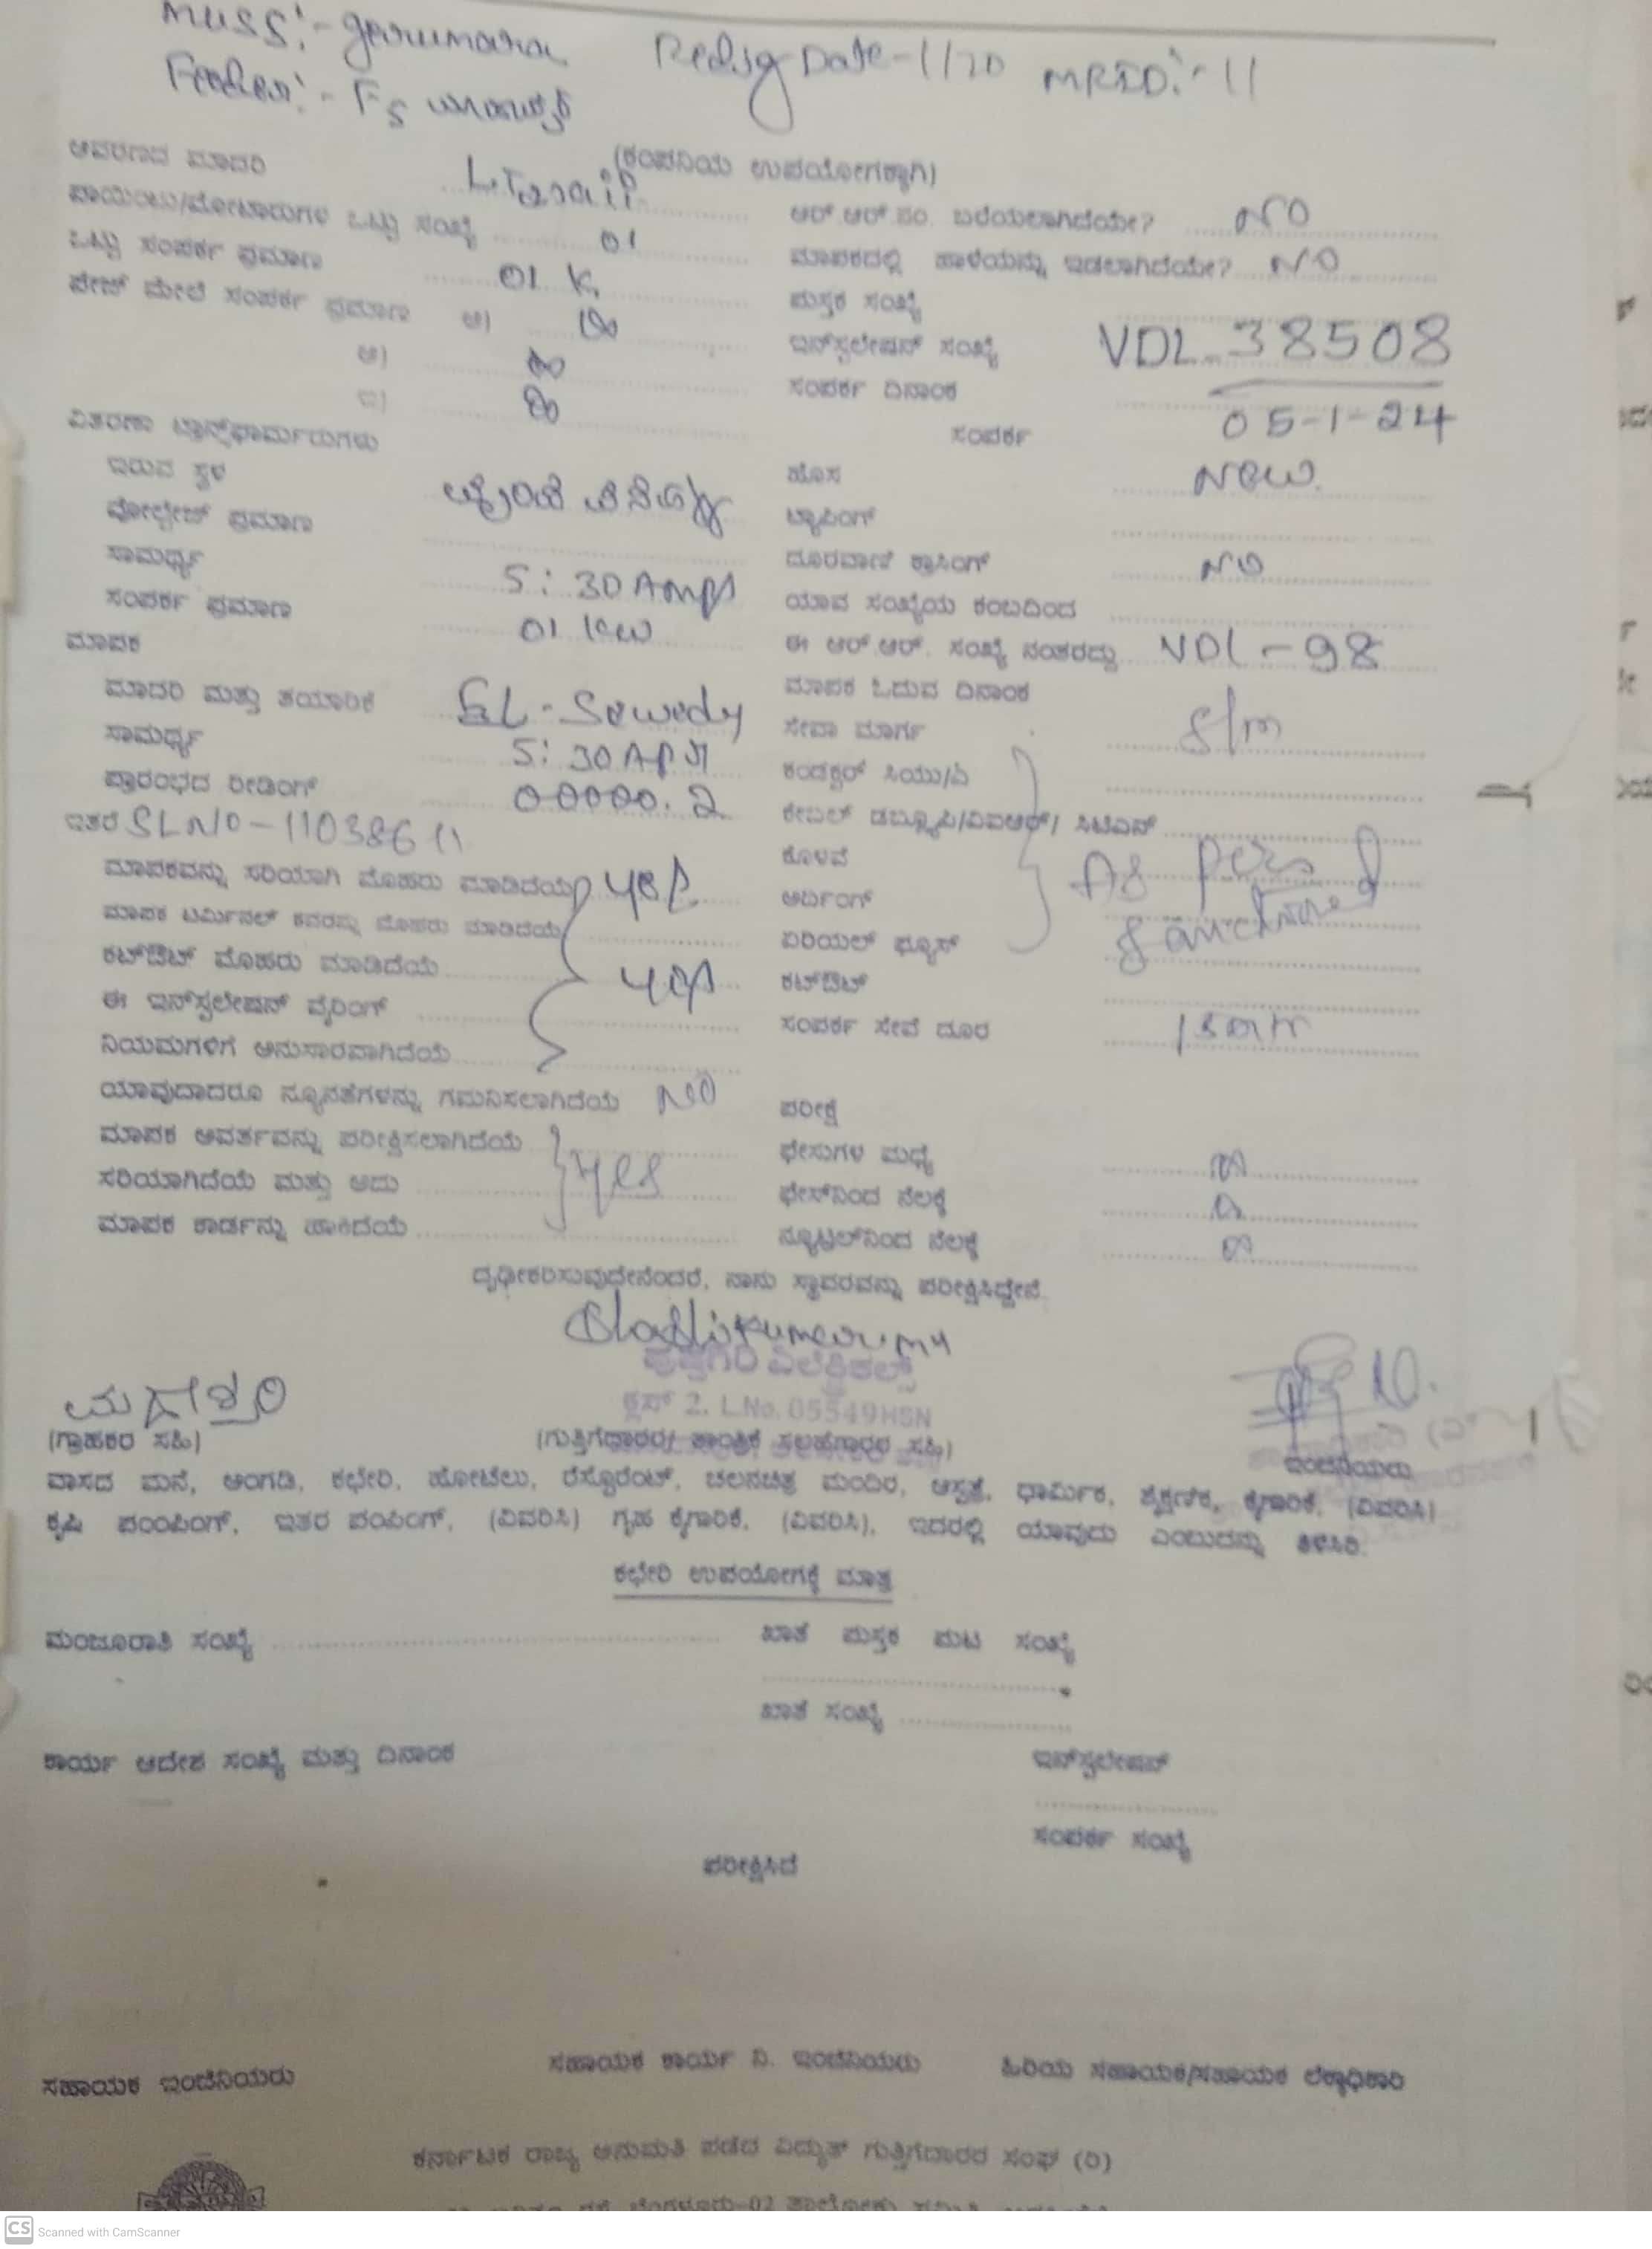 MUSS:-
Date-1/20 MRID:-11
F5
ಆವರಣದ ಮಾದರಿ
(ಕಂಪನಿಯ ಉಪಯೋಗಕ್ಕಾಗಿ)
ಪಾಯಿಂಟು/ಮೋಟಾರುಗಳ ಒಟ್ಟು ಸಂಖ್ಯೆ 01
ಆರ್.ಆರ್.ನಂ. ಬರೆಯಲಾಗಿದೆಯೇ? NO
ಒಟ್ಟು ಸಂಪರ್ಕ ಪ್ರಮಾಣ 01 K
ಮಾಪಕದಲ್ಲಿ ಹಾಳೆಯನ್ನು ಇಡಲಾಗಿದೆಯೇ? NO
ಪೇಜ್ ಮೇಲೆ ಸಂಪರ್ಕ ಪ್ರಮಾಣ ಅ)
ಪುಸ್ತಕ ಸಂಖ್ಯೆ
ಆ)
ಇನ್‌ಸ್ಟಲೇಷನ್ ಸಂಖ್ಯೆ VDL 38508
ಇ)
ಸಂಪರ್ಕ ದಿನಾಂಕ 05-1-24
ವಿತರಣಾ ಟ್ರಾನ್ಸ್‌ಫಾರ್ಮರುಗಳು
ಸಂಪರ್ಕ
ಇರುವ ಸ್ಥಳ
ಹೊಸ New.
ವೋಲ್ಟೇಜ್ ಪ್ರಮಾಣ
ಟ್ಯಾಪಿಂಗ್
ಸಾಮರ್ಥ್ಯ 5:30 Amps
ದೂರವಾಣಿ ಕ್ರಾಸಿಂಗ್ NO
ಸಂಪರ್ಕ ಪ್ರಮಾಣ 01 KW
ಯಾವ ಸಂಖ್ಯೆಯ ಕಂಬದಿಂದ
ಮಾಪಕ
ಈ ಆರ್.ಆರ್. ಸಂಖ್ಯೆ ನಂತರದ್ದು VDL-98
ಮಾದರಿ ಮತ್ತು ತಯಾರಿಕೆ EL-Sewedy
ಮಾಪಕ ಓದುವ ದಿನಾಂಕ
ಸಾಮರ್ಥ್ಯ 5:30
ಸೇವಾ ಮಾರ್ಗ
ಪ್ರಾರಂಭದ ರೀಡಿಂಗ್ 00000.2
ಕಂಡಕ್ಟರ್ ಸಿಯು/ಎ
ಇತರೆ SLNO-11038611
ಕೇಬಲ್ ಡಬ್ಲ್ಯೂಪಿ/ವಿಐಆರ್/ ಸಿಟಿಎಸ್
ಮಾಪಕವನ್ನು ಸರಿಯಾಗಿ ಮೊಹರು ಮಾಡಿದೆಯೆ yes
ಕೊಳವೆ As per
ಮಾಪಕ ಟರ್ಮಿನಲ್ ಕವರನ್ನು ಮೊಹರು ಮಾಡಿದೆಯೆ
ಅರ್ದಿಂಗ್ Sanctioned
ಕಟ್‌ಔಟ್ ಮೊಹರು ಮಾಡಿದೆಯೆ yes
ಏರಿಯಲ್ ಫ್ಯೂಸ್
ಈ ಇನ್‌ಸ್ಟಲೇಷನ್ ವೈರಿಂಗ್
ಕಟ್‌ಔಟ್
ನಿಯಮಗಳಿಗೆ ಅನುಸಾರವಾಗಿದೆಯೆ
ಸಂಪರ್ಕ ಸೇವೆ ದೂರ
ಯಾವುದಾದರೂ ನ್ಯೂನತೆಗಳನ್ನು ಗಮನಿಸಲಾಗಿದೆಯೆ NO
ಪರೀಕ್ಷೆ
ಮಾಪಕ ಆವರ್ತವನ್ನು ಪರೀಕ್ಷಿಸಲಾಗಿದೆಯೆ
ಫೇಸುಗಳ ಮಧ್ಯೆ
ಸರಿಯಾಗಿದೆಯೆ ಮತ್ತು ಅದು yes
ಫೇಸ್‌ನಿಂದ ನೆಲಕ್ಕೆ
ಮಾಪಕ ಕಾರ್ಡನ್ನು ಹಾಕಿದೆಯೆ
ನ್ಯೂಟ್ರಲ್‌ನಿಂದ ನೆಲಕ್ಕೆ
ದೃಢೀಕರಿಸುವುದೇನೆಂದರೆ, ನಾನು ಸ್ಥಾವರವನ್ನು ಪರೀಕ್ಷಿಸಿದ್ದೇನೆ.
ಪುಷ್ಪಗಿರಿ ಎಲೆಕ್ಟ್ರಿಕಲ್ಸ್
ಕ್ಲಾಸ್ 2. L.No. 05549HSN
(ಗ್ರಾಹಕರ ಸಹಿ)
(ಗುತ್ತಿಗೆದಾರರ/ ತಾಂತ್ರಿಕ ಸಲಹೆಗಾರರ ಸಹಿ)
ಇಂಜಿನಿಯರು
ವಾಸದ ಮನೆ, ಅಂಗಡಿ, ಕಛೇರಿ, ಹೋಟೆಲು, ರೆಸ್ಟೊರೆಂಟ್, ಚಲನಚಿತ್ರ ಮಂದಿರ, ಆಸ್ಪತ್ರೆ, ಧಾರ್ಮಿಕ, ಶೈಕ್ಷಣಿಕ, ಕೈಗಾರಿಕೆ, (ವಿವರಿಸಿ)
ಕೃಷಿ ಪಂಪಿಂಗ್, ಇತರ ಪಂಪಿಂಗ್, (ವಿವರಿಸಿ) ಗೃಹ ಕೈಗಾರಿಕೆ, (ವಿವರಿಸಿ), ಇದರಲ್ಲಿ ಯಾವುದು ಎಂಬುದನ್ನು ತಿಳಿಸಿರಿ.
ಕಛೇರಿ ಉಪಯೋಗಕ್ಕೆ ಮಾತ್ರ
ಮಂಜೂರಾತಿ ಸಂಖ್ಯೆ
ಖಾತೆ ಪುಸ್ತಕ ಪುಟ ಸಂಖ್ಯೆ
ಖಾತೆ ಸಂಖ್ಯೆ
ಕಾರ್ಯ ಆದೇಶ ಸಂಖ್ಯೆ ಮತ್ತು ದಿನಾಂಕ
ಇನ್‌ಸ್ಟಲೇಷನ್
ಸಂಪರ್ಕ ಸಂಖ್ಯೆ
ಪರೀಕ್ಷಿಸಿದೆ
ಸಹಾಯಕ ಇಂಜಿನಿಯರು
ಸಹಾಯಕ ಕಾರ್ಯ ನಿ. ಇಂಜಿನಿಯರು
ಹಿರಿಯ ಸಹಾಯಕ/ಸಹಾಯಕ ಲೆಕ್ಕಾಧಿಕಾರಿ
ಕರ್ನಾಟಕ ರಾಜ್ಯ ಅನುಮತಿ ಪಡೆದ ವಿದ್ಯುತ್ ಗುತ್ತಿಗೆದಾರರ ಸಂಘ (ರಿ)
ಬೆಂಗಳೂರು-02
CS Scanned with CamScanner